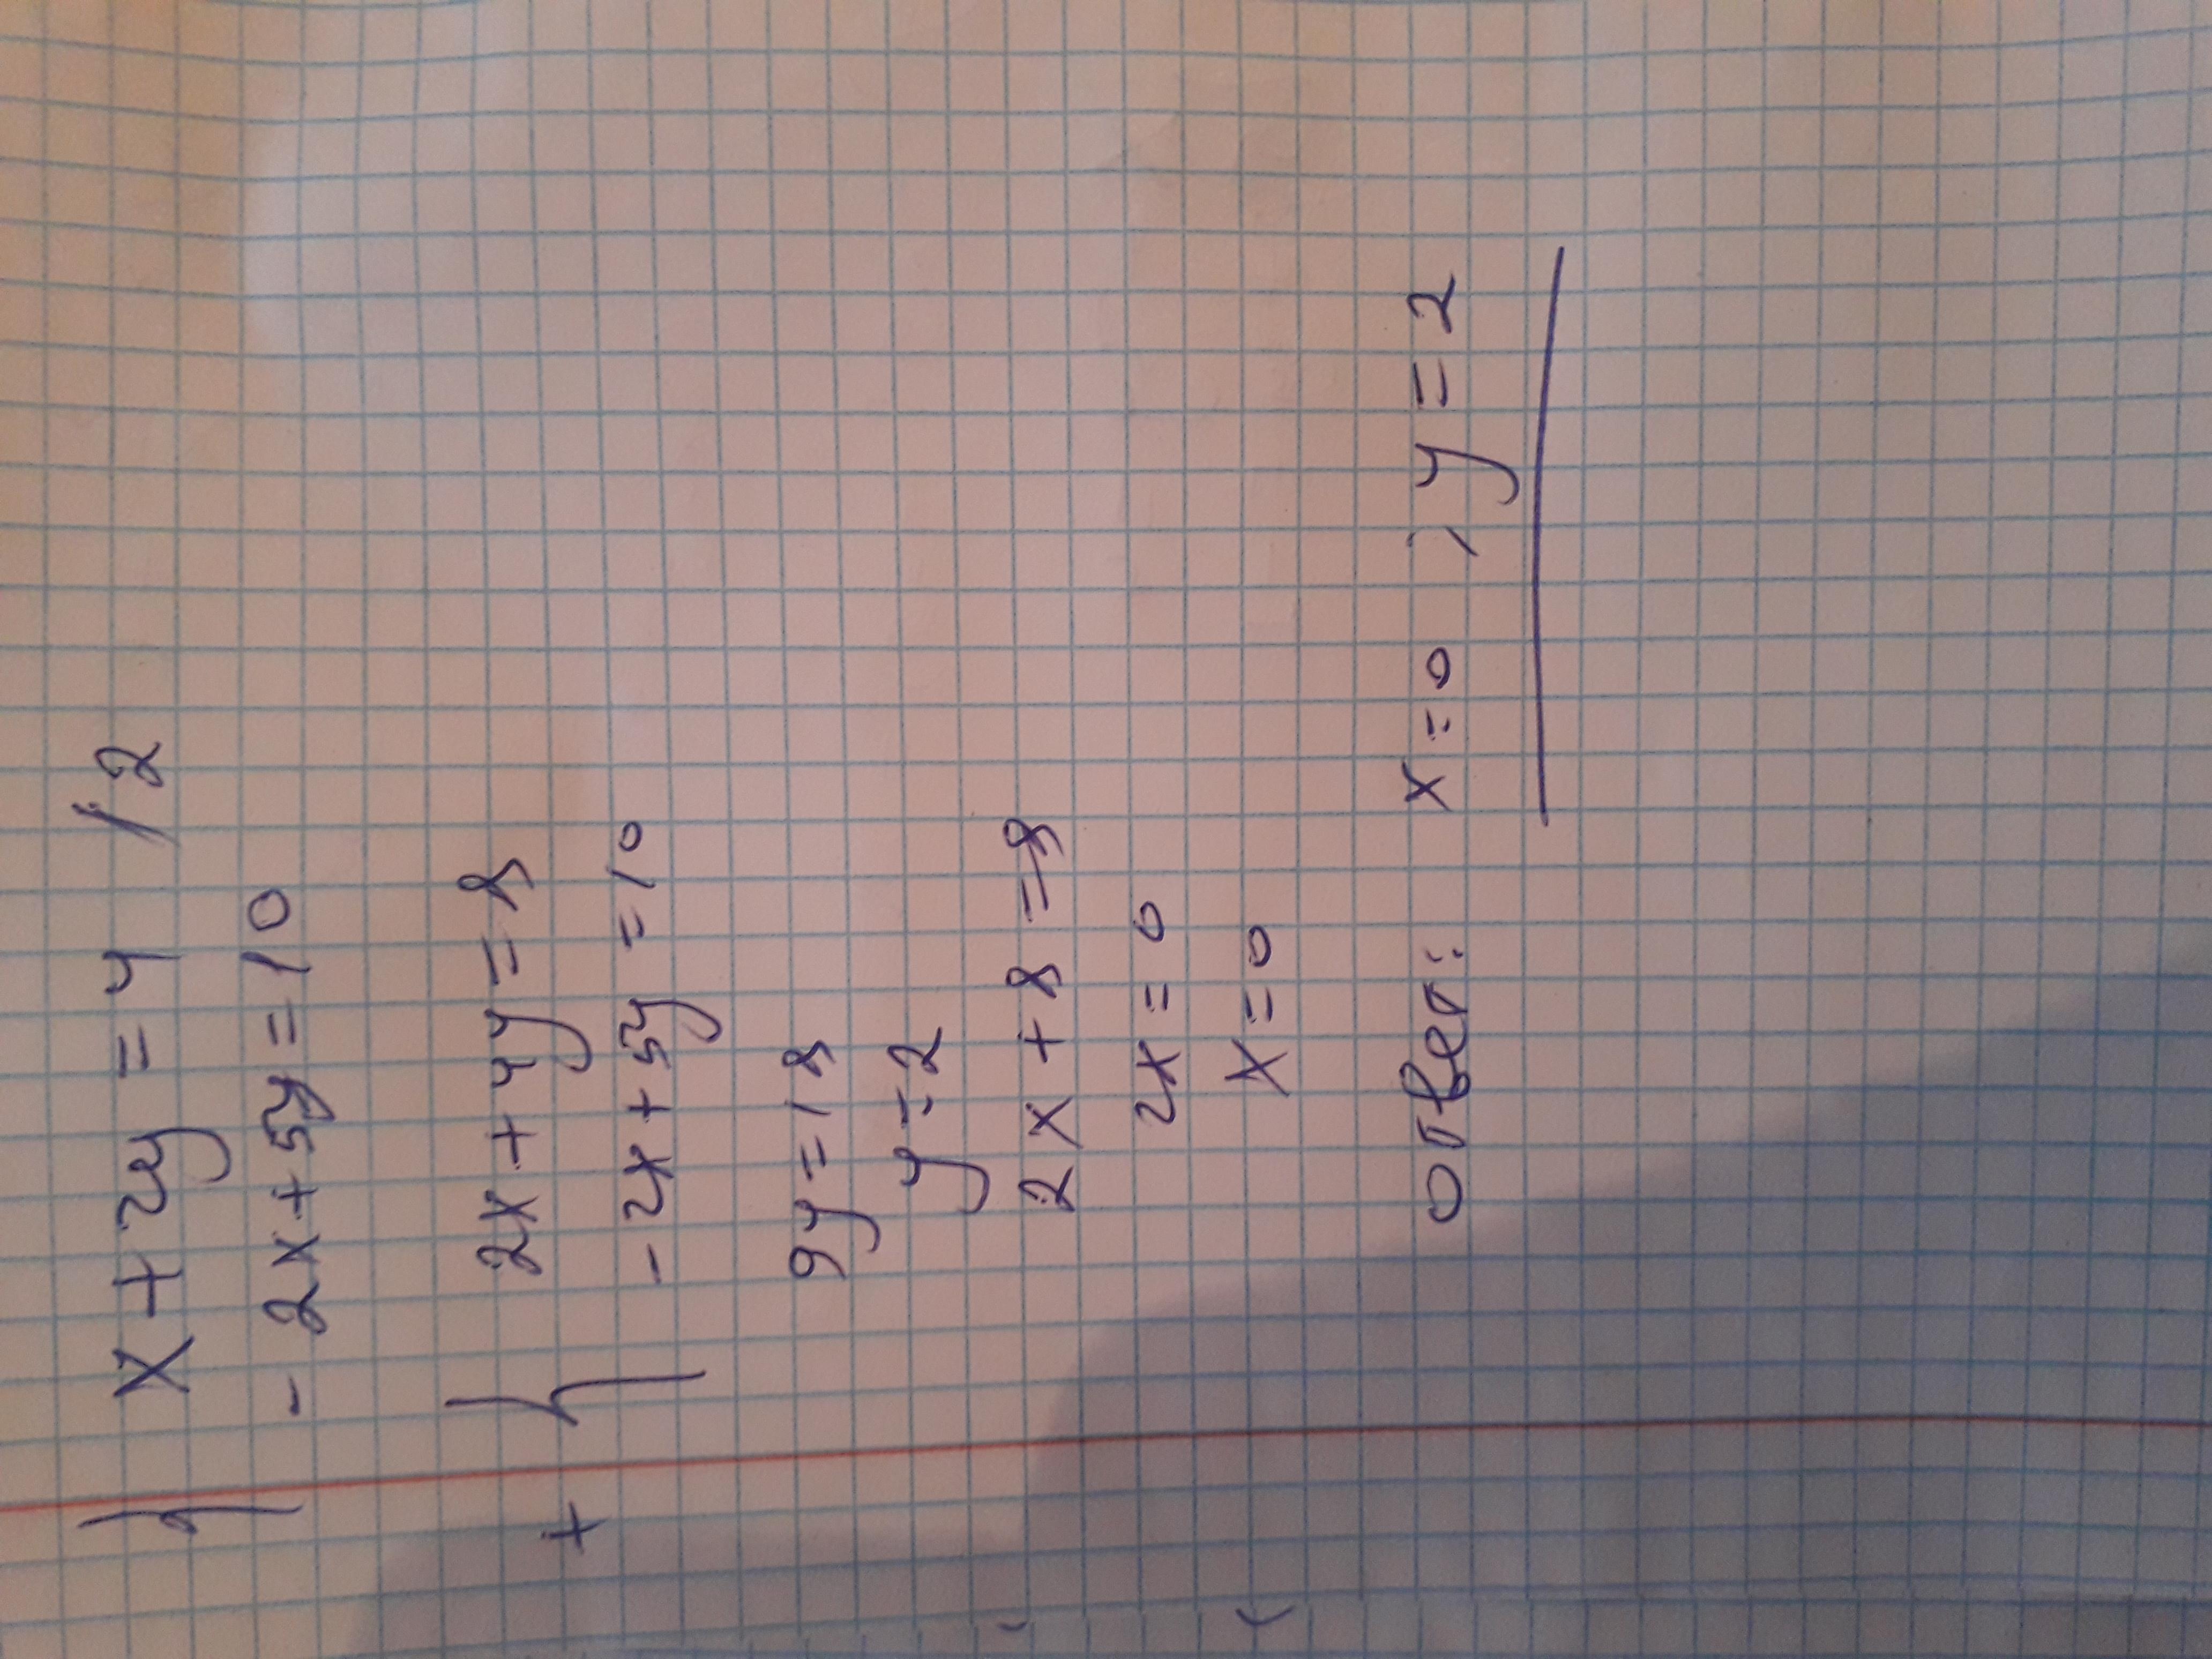 x + 2y = 4 /2
- 2x + 5y = 10
2x + 4y = 8
+ {
- 2x + 5y = 10
9y = 18
y = 2
2x + 8 = 8
2x = 0
x = 0
ответ: x = 0 ; y = 2